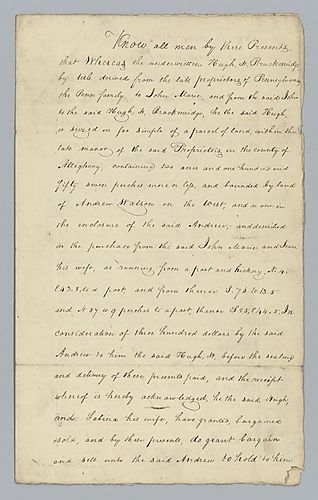 Know all men by these Presents,
that Whereas the underwritten Hugh, H. Brackenridge
by title derived from the late proprietors of Pennsylvania
the Penn family, to John Marie, and from the said John
to the said Hugh, H. Brackenridge, he the said Hugh
is seized in fee simple of a parcel of land, within the
late manor of the said Proprietors in the county of
Allegheny, containing two acres and one hundred and
fifty seven perches more or less, and bounded by land
of Andrew Watson on the West, and now in
the enclosure of the said Andrew, and described
in the purchase from the said John Marie and Jean
his wife, as running from a post and hickory, N. 4.
E 43.3, to a post, and from thence S. 75. W. 13.5
and N 37 W 9 perches to a post, thence S 25, E 44.5. In
consideration of three hundred dollars by the said
Andrew to him the said Hugh, H. before the sealing
and delivery of these presents paid, and the receipt
whereof is hereby acknowledged, he the said Hugh,
and Sabina his wife, have granted, bargained
sold, and by these presents, do grant bargain
and sell unto the said Andrew to hold to him